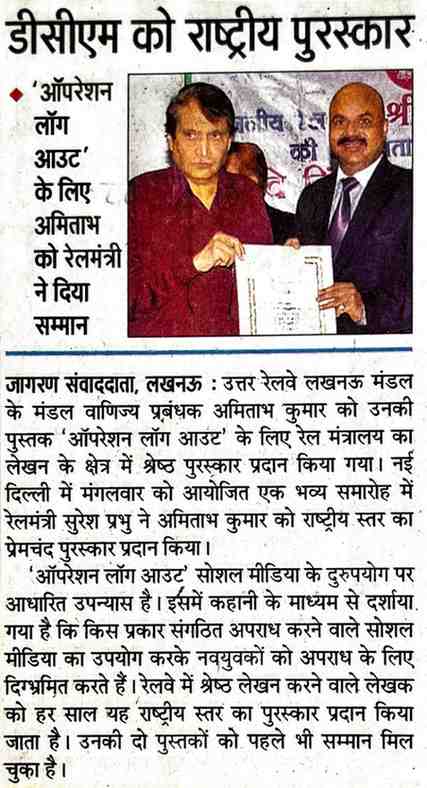 डीसीएम को राष्ट्रीय पुरस्कार
'ऑपरेशन
लॉग
आउट'
के लिए
अमिताभ
को रेलमंत्री
ने दिया
सम्मान
जागरण संवाददाता, लखनऊ : उत्तर रेलवे लखनऊ मंडल
के मंडल वाणिज्य प्रबंधक अमिताभ कुमार को उनकी
पुस्तक 'ऑपरेशन लॉग आउट' के लिए रेल मंत्रालय का
लेखन के क्षेत्र में श्रेष्ठ पुरस्कार प्रदान किया गया। नई
दिल्ली में मंगलवार को आयोजित एक भव्य समारोह में
रेलमंत्री सुरेश प्रभु ने अमिताभ कुमार को राष्ट्रीय स्तर का
प्रेमचंद पुरस्कार प्रदान किया।
'ऑपरेशन लॉग आउट' सोशल मीडिया के दुरुपयोग पर
आधारित उपन्यास है। इसमें कहानी के माध्यम से दर्शाया
गया है कि किस प्रकार संगठित अपराध करने वाले सोशल
मीडिया का उपयोग करके नवयुवकों को अपराध के लिए
दिग्भ्रमित करते हैं। रेलवे में श्रेष्ठ लेखन करने वाले लेखक
को हर साल यह राष्ट्रीय स्तर का पुरस्कार प्रदान किया
जाता है। उनकी दो पुस्तकों को पहले भी सम्मान मिल
चुका है।